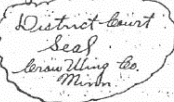 District Court
Seal
Crow Wing Co.
Minn